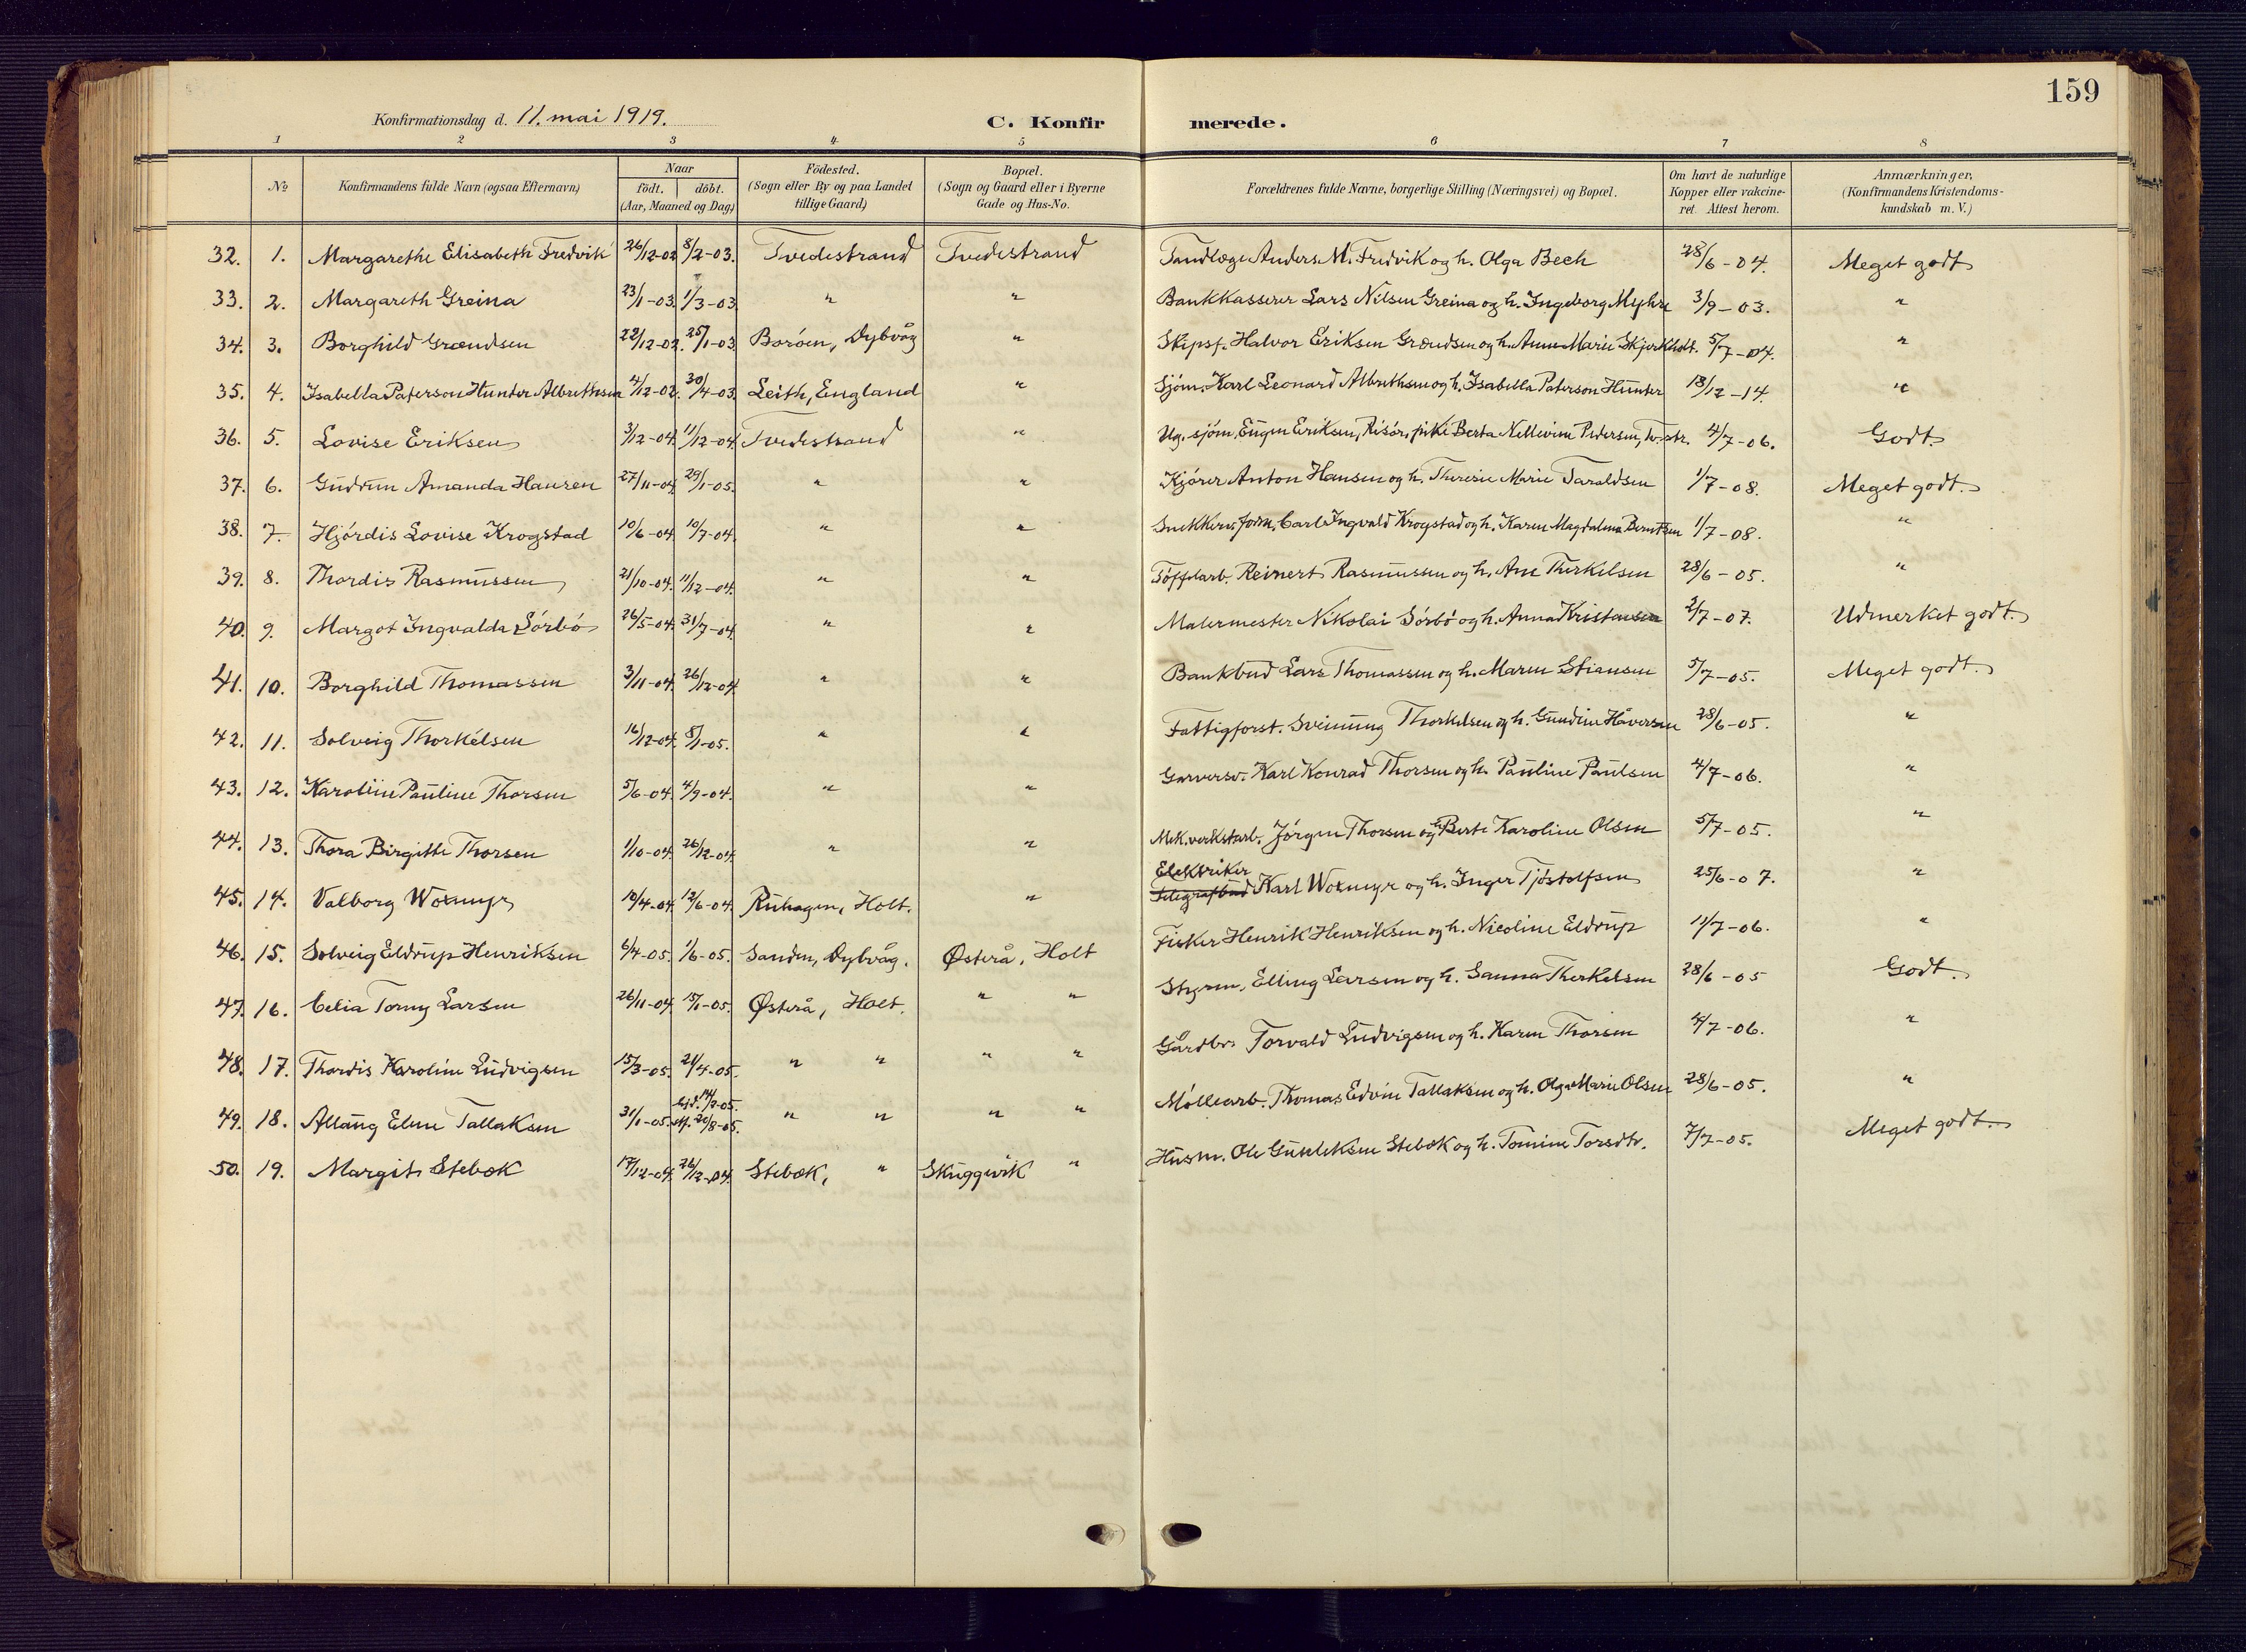 159
Konfirmationsdag d. 11. mai 1919. C. Konfirmerede.
1 2 3 4 5 6 7 8
No Konfirmandens fulde Navn (ogsaa Efternavn) Naar födt. döbt. (Aar, Maaned og Dag) Födested. (Sogn eller By og paa Landet tillige Gaard) Bopæl. (Sogn og Gaard eller i Byerne Gade og Hus-No. Forældrenes fulde Navne, borgerlige Stilling (Næringsvei) og Bopæl. Om havt de naturlige Kopper eller vakcineret. Attest herom. Anmærkninger, (Konfirmandens Kristendomskundskab m. V.)
32. 1. Margarethe Elisabeth Fredvik 26/12-02 8/2-03. Tvedestrand Tvedestrand Tandlæge Anders M. Fredvik og h. Olga Bech 28/6-04. Meget godt
33. 2. Margareth Greina 23/1-03. 1/3-03 " " Bankkasserer Lars Nilsen Greina og h. Ingeborg Myhre 3/9-03. "
34. 3. Borghild Grændsen 22/12-02. 25/1-03. Boröen, Dybvåg " Skipsf. Halvor Eriksen Grændsen og h. Anne Marie Skjerkholt. 5/7-04. "
35. 4. Isabella Paterson Hunter Albrethsen 4/12-02. 30/4-03. Leith, England " Sjöm. Karl Leonard Albrethsen og h. Isabella Paterson Hunter 13/12-14. "
36. 5. Lovise Eriksen 3/12-04. 11/12-04. Tvedestrand " Ug. sjöm. Eugen Eriksen, Risör, pike Berta Nellevine Pedersen, Tv.str. 4/7-06. Godt.
37. 6. Gudrun Amanda Hansen 27/11-04. 29/1-05. " " Kjörer Anton Hansen og h. Theresie Marie Taraldsen 1/7-08. Meget godt.
38. 7. Hjördis Lovise Krogstad 10/6-04. 10/7-04. " " Snekkerv. form. Carl Ingvald Krogstad og h. Karen Magdalena Berntsen 1/7-08. "
39. 8. Thordis Rasmussen 21/10-04. 11/12-04. " " Töffelarb. Reinert Rasmussen og h. Ane Therkilsen 28/6-05. "
40. 9. Margot Ingvalda Sörbö 26/5-04. 31/7-04. " " Malermester Nikolai Sörbö og h. Anna Kristensen 2/7-07. Udmerket godt.
41. 10. Borghild Thomassen 3/11-04. 26/12-04. " " Bankbud Lars Thomassen og h. Maren Stiansen 5/7-05. Meget godt.
42. 11. Solveig Thorkelsen 16/12-04. 8/1-05. " " Fattigforst. Sveinung Thorkelsen og h. Gundine Håversen 28/6-05. "
43. 12. Karoline Pauline Thorsen 5/6-04. 4/9-04. " " Garversv. Karl Konrad Thorsen og h. Pauline Paulsen 4/7-06. "
44. 13. Thora Birgitte Thorsen 1/10-04. 26/12-04. " " Mek. verkstarb. Jörgen Thorsen og h. Berte Karoline Olsen 5/7-05. "
45. 14. Valborg Woxmyr 10/4-04. 12/6-04. Ruhagen, Holt. " Elektriker Telegrafbud Karl Woxmyr og h. Inger Tjöstolfsen 25/6-07. "
46. 15. Solveig Eldrup Henriksen 6/4-05. 1/6-05. Sanden, Dybvåg. Østerå, Holt Fisker Henrik Henriksen og h. Nicoline Eldrup 11/7-06. "
47. 16. Celia Torny Larsen 26/11-04. 15/1-05. Østerå, Holt. " " Styrm. Elling Larsen og h. Sanna Therkelsen 28/6-05 Godt.
48. 17. Thordis Karoline Ludvigsen 15/3-05. 24/4-05. " " " " Gårdbr. Torvald Ludvigsen og h. Karen Thorsen 4/7-06. "
49. 18. Allaug Eline Tallaksen 31/1-05. hjd. 14/2-05. 20/8-05. " " " " Möllearb. Thomas Edvin Tallaksen og h. Olga Marie Olsen 28/6-05. "
50. 19. Margit Stebok 17/12-04. 26/12-04. Stebok, " Skuggevik " Husm. Ole Guselcksen Stebok og h. Tomine Torsdtr. 7/7-05. Meget godt.